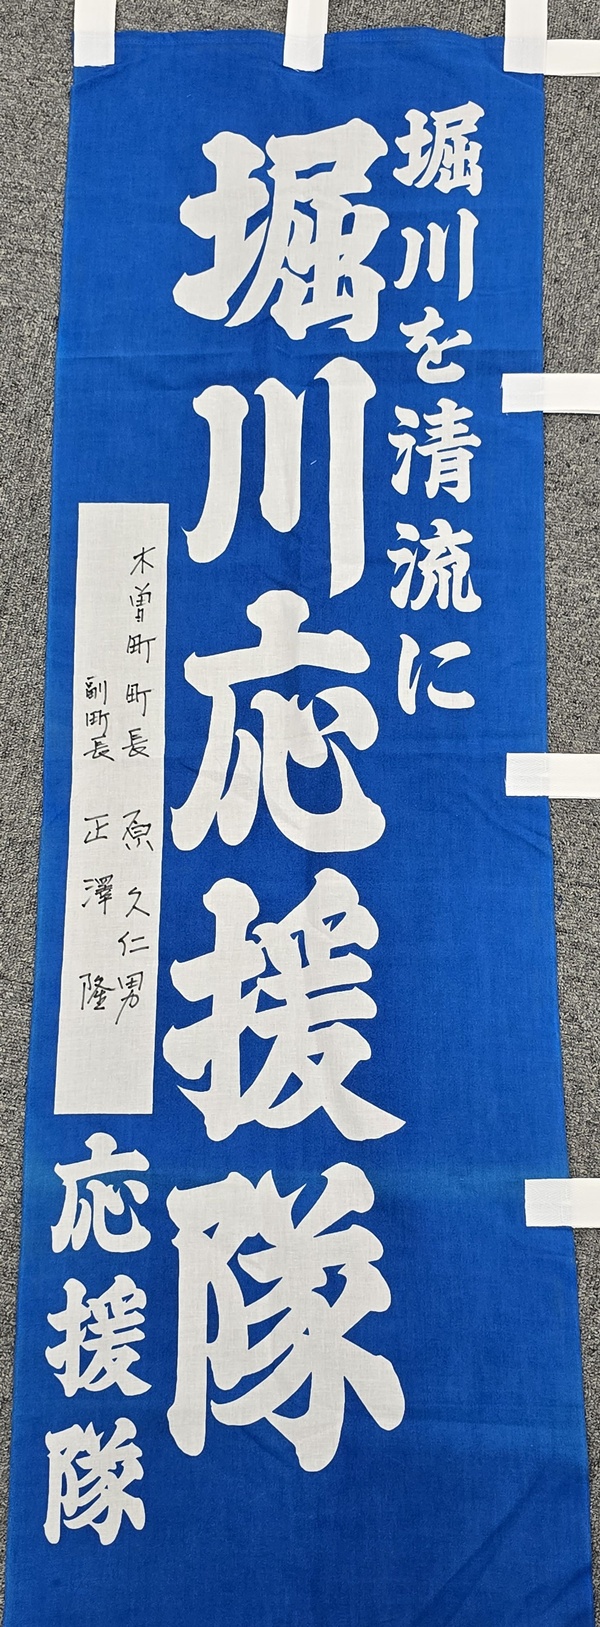 堀川を清流に
堀川応援隊
木曽町町長 原久仁男
副町長 正澤隆
応援隊